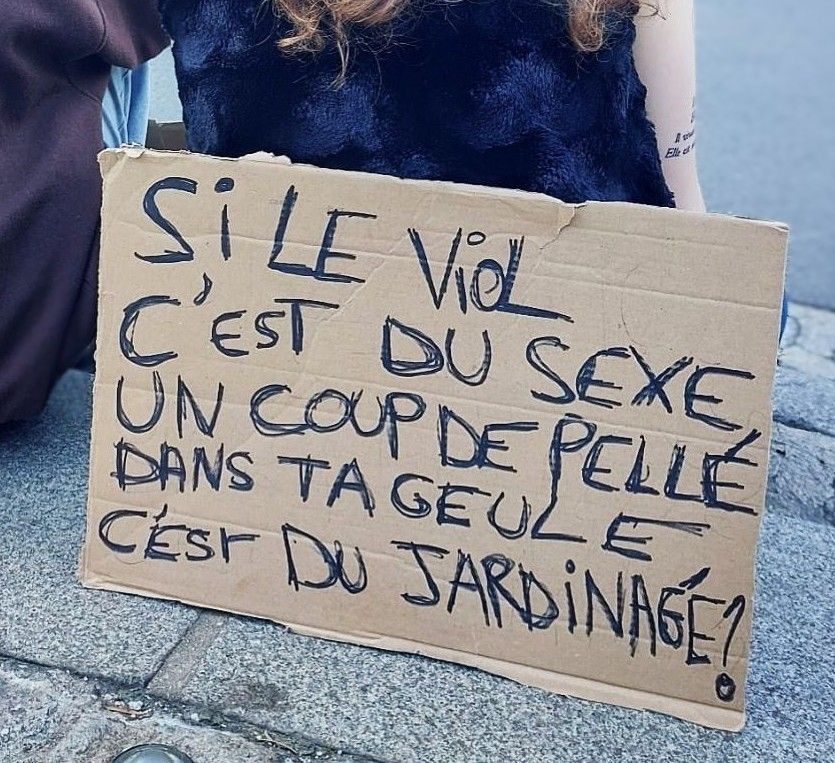 Si LE ViOL
C'EST DU SEXE
UN COUP DE PELLÉ
DANS TA GEULE
C'ÉST DU JARDiNAGÉ!
Elle